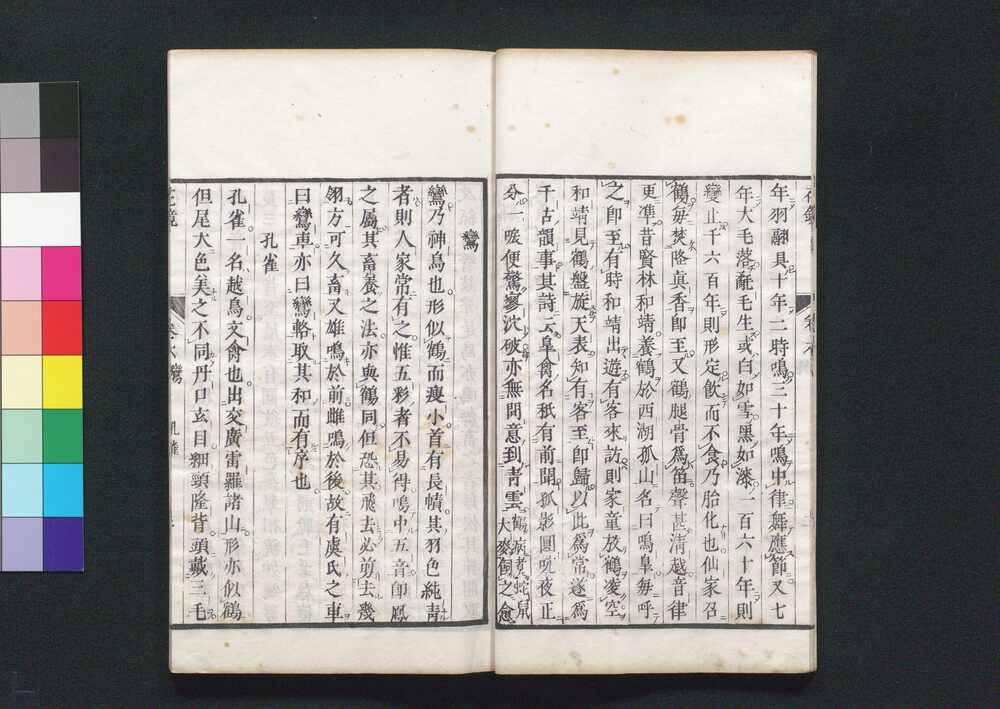 年羽翮具十年二時鳴三十年鳴中律舞應節又七
年大毛落氄毛生或白如雪黑如漆一百六十年則
變止千六百年則形定飲而不食乃胎化也仙家召
鶴每焚降眞香卽至又鶴腿骨爲笛聲甚淸越音律
更準昔賢林和靖養鶴於西湖孤山名曰鳴皐每呼
之卽至有時和靖出遊有客來訪則家童放鶴凌空
和靖見鶴盤旋天表知有客至卽歸以此爲常遂爲
千古韻事其詩云皐禽名秪有前聞孤影圓吭夜正
分一唳便驚寥泬破亦無閒意到靑雲鶴病者蛇鼠
大麥飼之愈
鸞
鸞乃神鳥也形似鶴而瘦小首有長幘其羽色純靑
者則人家常有之惟五彩者不易得鳴中五音卽鳳
之屬其畜養之法亦與鶴同但恐其飛去必剪去幾
翎方可久畜又雄鳴於前雌鳴於後故有虞氏之車
曰鸞車亦曰鸞輅取其和而有序也
孔雀
孔雀一名越鳥文禽也出交廣雷羅諸山形亦似鶴
但尾大色美之不同丹口玄目細頸隆背頭戴三毛
花鏡
卷六鸞
孔雀